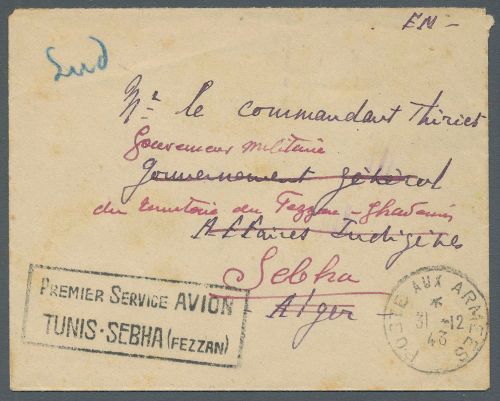 EM-
Sud
Mr le commandant Thiriet
Gouverneur militaire
Gouvernement général
du territoire du Fezzan-Ghadamès
Affaires Indigènes
Sebha
Alger
PREMIER SERVICE AVION
TUNIS-SEBHA (FEZZAN)
POSTE AUX ARMÉES
*
31-12
43